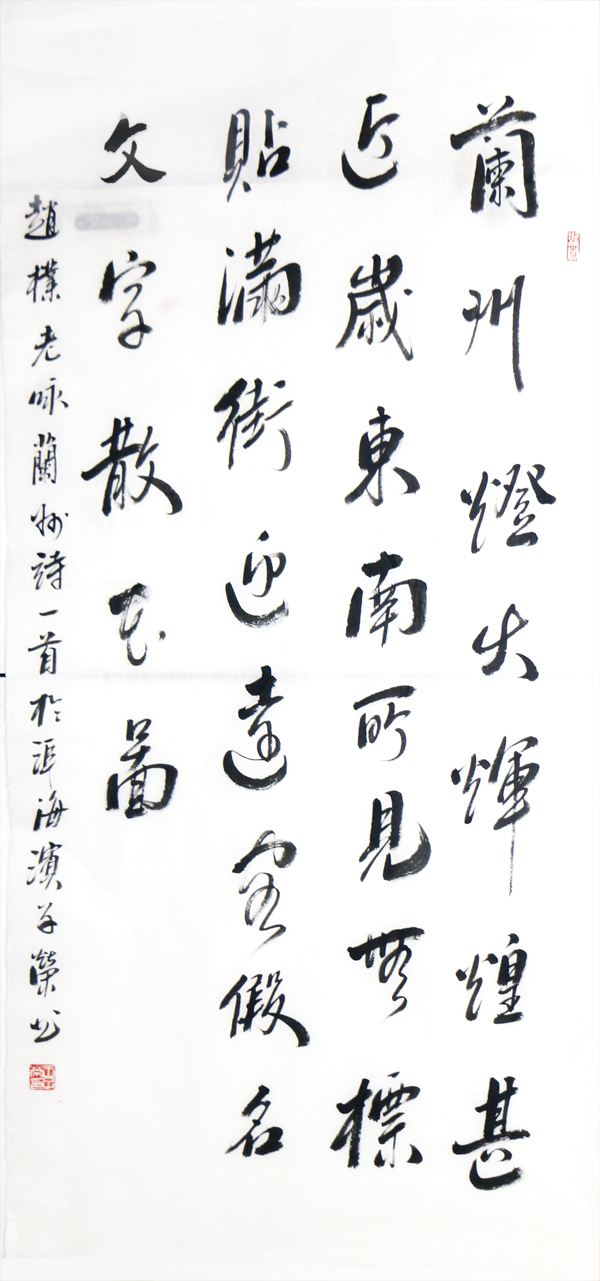 蘭州燈火輝煌甚
近歲東南所見無標
貼滿街迎遠客假名
文字散花圖
趙樸老咏蘭州詩一首於洱海濱子榮书